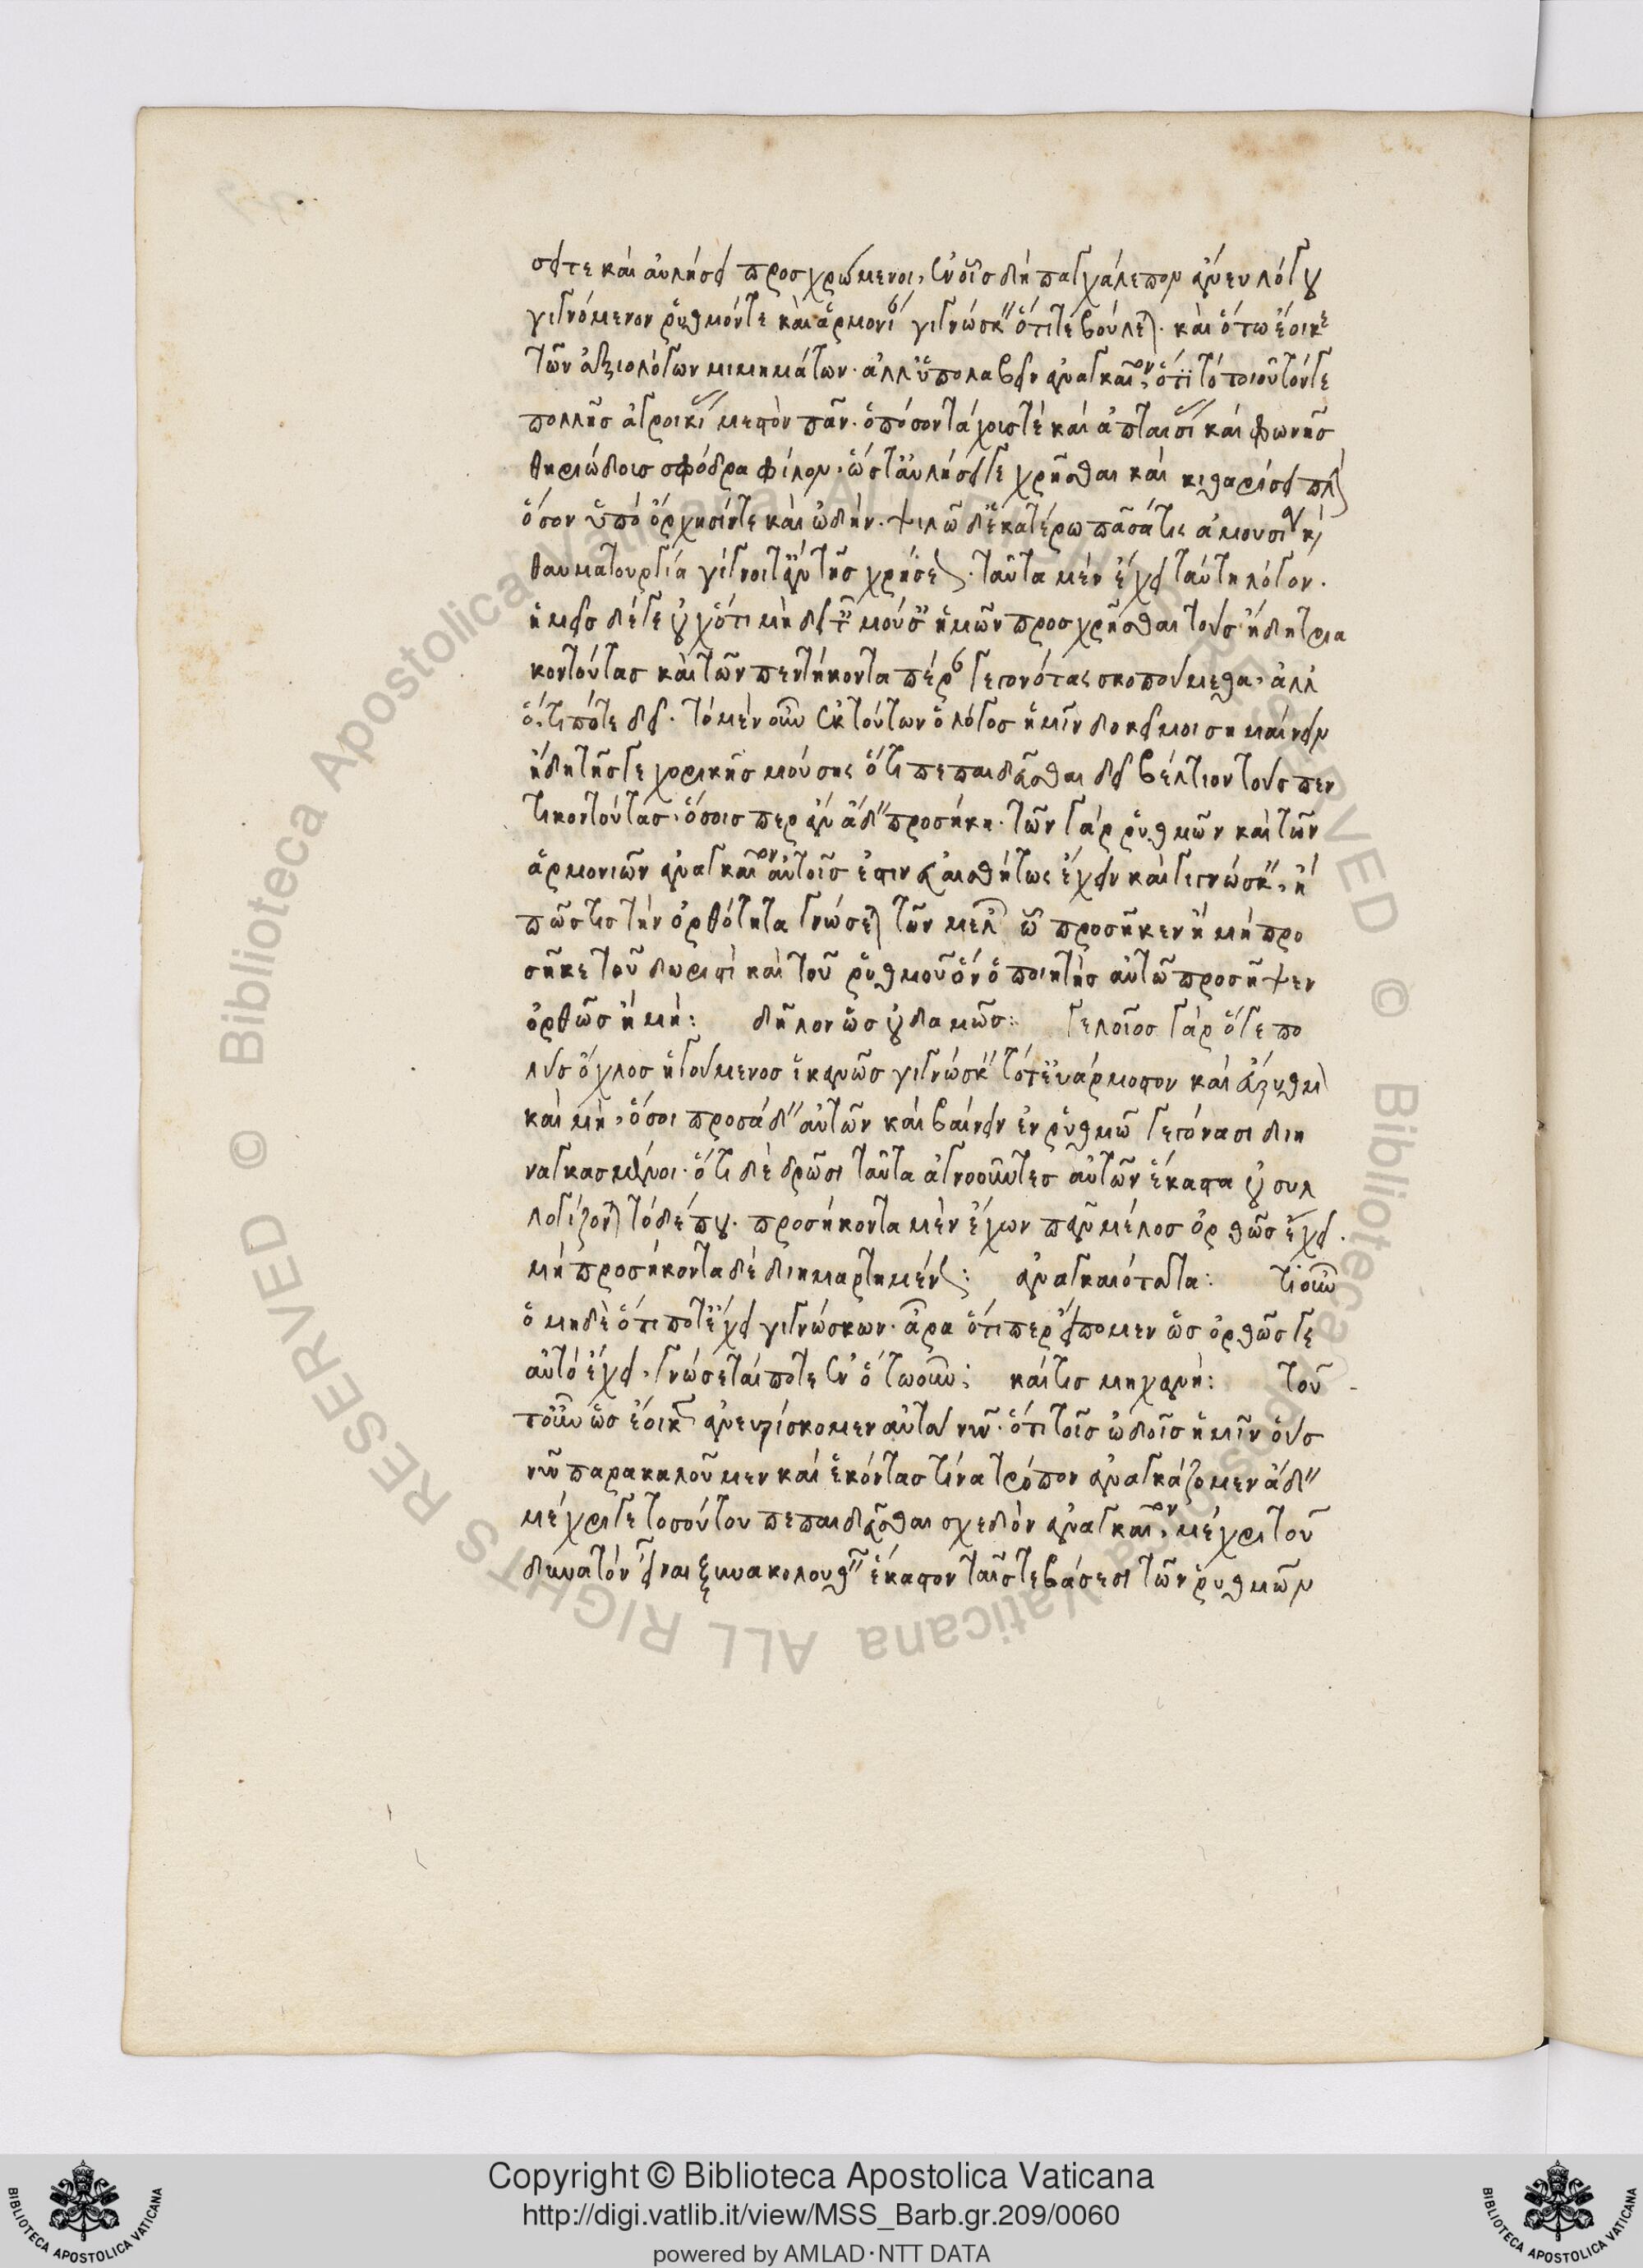 σει τε καὶ αὐλήσει προσχρώμενοι, ἐν οἷς δὴ παγχάλεπον ἄνευ λόγου
γιγνόμενον ῥυθμόν τε καὶ ἁρμονίαν γιγνώσκειν ὅτι τε βούλεται. καὶ ὅτῳ ἔοικε
τῶν ἀξιολόγων μιμημάτων. ἀλλ' ὑπολαβεῖν ἀναγκαῖον, ὅτι τὸ τοιοῦτόν γε
πολλῆς ἀγροικίας μεστὸν πᾶν. ὁπόσον τάχους τε καὶ ἀπταισίας καὶ φωνῆς
θηριώδους σφόδρα φίλον, ὥστ' αὐλήσει γε χρῆσθαι καὶ κιθαρίσει πλὴν
ὅσον ὑπὸ ὄρχησίν τε καὶ ᾠδήν. ψιλῷ δ' ἑκατέρῳ πᾶσά τις ἀμουσία καὶ
θαυματουργία γίγνοιτ' ἂν τῆς χρήσεως. ταῦτα μὲν ἔχει ταύτῃ λόγον.
ἡμεῖς δέ γε οὐχ ὅτι μὴ δεῖ ταῖς μούσαις ἡμῶν προσχρῆσθαι τοὺς ἤδη τρια
κοντούτας καὶ τῶν πεντήκοντα πέραν γεγονότας σκοπούμεθα, ἀλλ'
ὅ,τι ποτε δεῖ. τὸ μὲν οὖν ἐκ τούτων ὁ λόγος ἡμῖν δοκεῖ μοι σημαίνειν
ἤδη τῆς γε χορικῆς μούσης ὅτι πεπαιδεῦσθαι δεῖ βέλτιον τοὺς πεν
τηκοντούτας, ὅσοις περ ἂν ᾄδειν προσήκῃ. τῶν γὰρ ῥυθμῶν καὶ τῶν
ἁρμονιῶν ἀναγκαῖον αὐτοῖς ἐστιν εὐαισθήτως ἔχειν καὶ γιγνώσκειν, ἢ
πῶς τις τὴν ὀρθότητα γνώσεται τῶν μελῶν ᾧ προσῆκεν ἢ μὴ προ
σῆκε τοῦ δωριστὶ καὶ τοῦ ῥυθμοῦ ὃν ὁ ποιητὴς αὐτῷ προσῆψεν
ὀρθῶς ἢ μή: δῆλον ὡς οὐδαμῶς: γελοῖος γὰρ ὅ γε πο
λὺς ὄχλος ἡγούμενος ἱκανῶς γιγνώσκειν τό τ' εὐάρμοστον καὶ εὔρυθμον
καὶ μή, ὅσοι προσᾴδειν αὐτῶν καὶ βαίνειν ἐν ῥυθμῷ γεγόνασι διη
ναγκασμένοι. ὅτι δὲ δρῶσι ταῦτα ἀγνοοῦντες αὐτῶν ἕκαστα οὐ συλ
λογίζονται τὸ δέ που. προσήκοντα μὲν ἔχων πᾶν μέλος ὀρθῶς ἔχει.
μὴ προσήκοντα δὲ διημαρτημένως: ἀναγκαιότατα: τί οὖν
ὁ μηδὲ ὅτι ποτ' ἔχει γιγνώσκων. ἆρα ὅτιπερ εἴπομεν ὡς ὀρθῶς γε
αὐτὸ ἔχει, γνώσεταί ποτε ἐν ὁτῳοῦν; καὶ τίς μηχανή: τοῦ
τ' οὖν ὡς ἔοικεν ἀνευρίσκομεν αὖ τὰ νῦν. ὅτι τοῖς ᾠδοῖς ἡμῖν οὓς
νῦν παρακαλοῦμεν καὶ ἑκόντας τινὰ τρόπον ἀναγκάζομεν ᾄδειν
μέχρι γε τοσούτου πεπαιδεῦσθαι σχεδὸν ἀναγκαῖον, μέχρι τοῦ
δυνατὸν εἶναι ξυνακολουθεῖν ἕκαστον ταῖς τε βάσεσι τῶν ῥυθμῶν
Copyright © Biblioteca Apostolica Vaticana
http://digi.vatlib.it/view/MSS_Barb.gr.209/0060
powered by AMLAD·NTT DATA